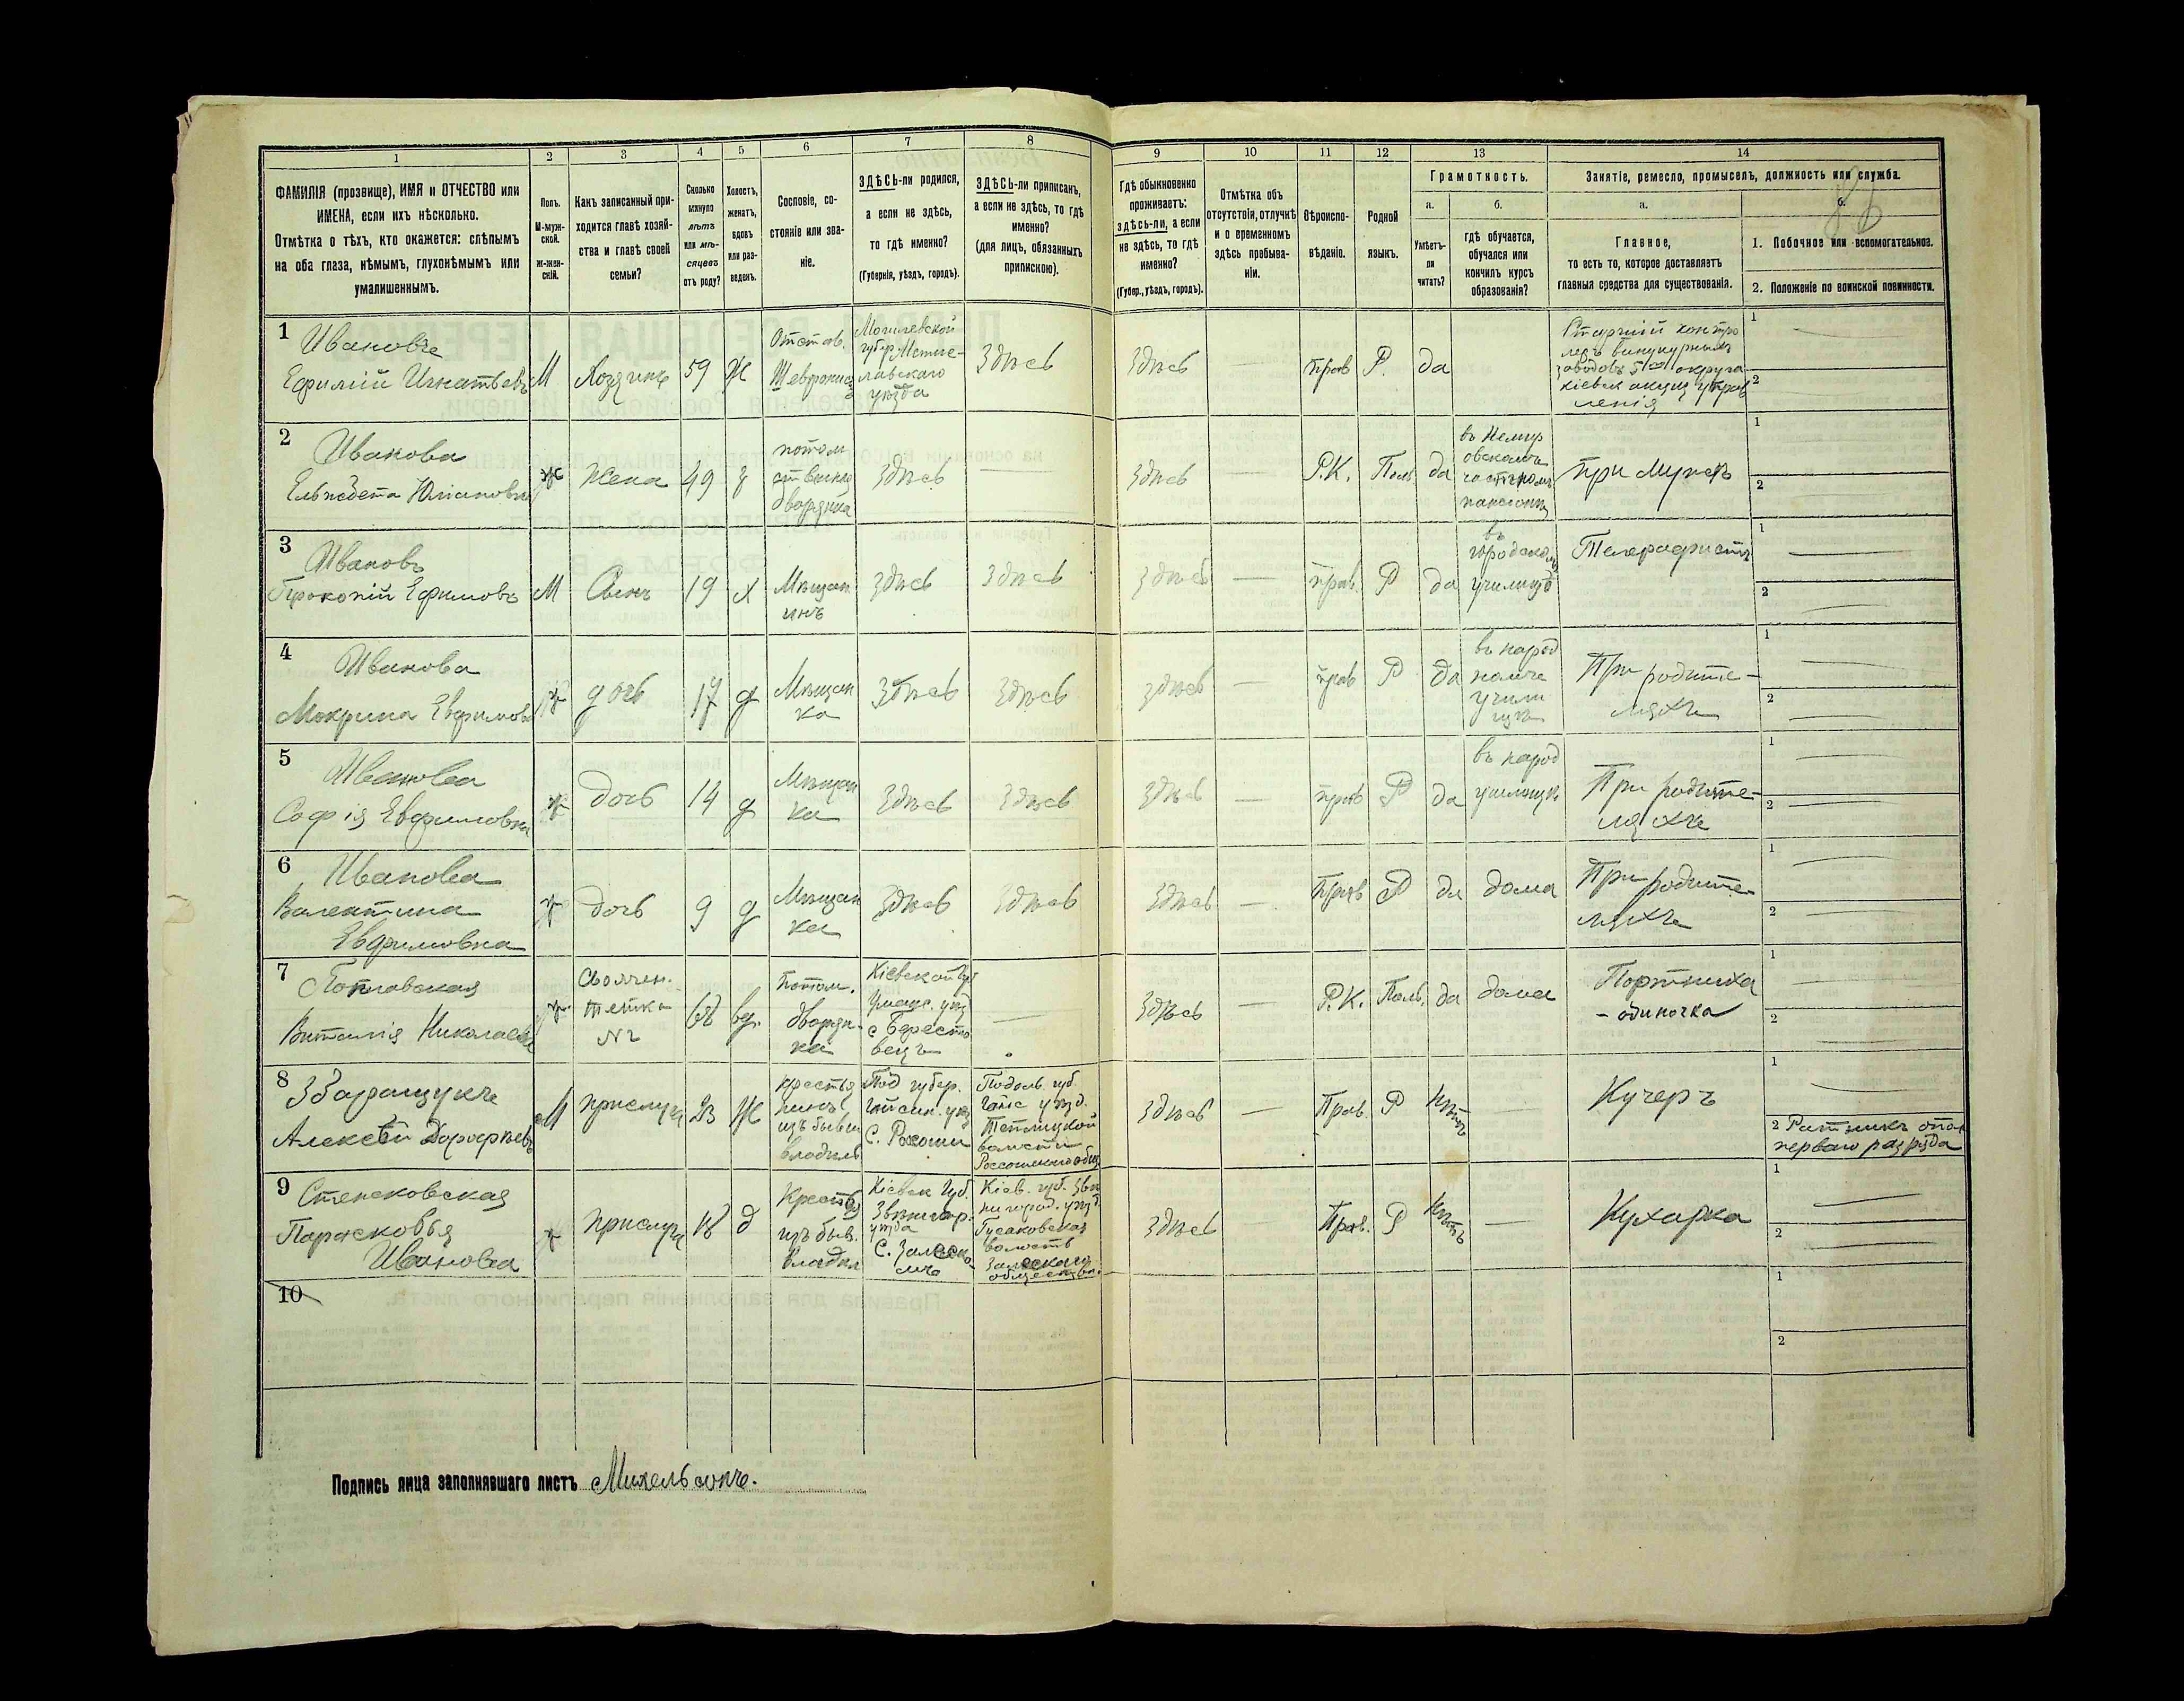 1
2
3
4
5
6
7
8
ФАМИЛІЯ (прозвище), ИМЯ и ОТЧЕСТВО или
ИМЕНА, если ихъ нѣсколько.
Отмѣтка о тѣхъ, кто окажется: слѣпымъ
на оба глаза, нѣмымъ, глухонѣмымъ или
умалишеннымъ.
Полъ.
М-муж-
ской.
Ж-жен-
скій.
Какъ записанный при-
ходится главѣ хозяй-
ства и главѣ своей
семьи?
Сколько
минуло
лѣтъ
или мѣ-
сяцевъ
отъ роду?
Холостъ,
женатъ,
вдовъ
или раз-
веденъ.
Сословіе, со-
стояніе или зва-
ніе.
ЗДѢСЬ-ли родился,
а если не здѣсь,
то гдѣ именно?
(Губернія, уѣздъ, городъ).
ЗДѢСЬ-ли приписанъ,
а если не здѣсь, то гдѣ
именно?
(для лицъ, обязанныхъ
припискою).
9
10
11
12
13
14
Гдѣ обыкновенно
проживаетъ:
здѣсь-ли, а если
не здѣсь, то гдѣ
именно?
(Губер., уѣздъ, городъ).
Отмѣтка объ
отсутствіи, отлучкѣ
и о временномъ
здѣсь пребыва-
ніи.
Вѣроиспо-
вѣданіе.
Родной
языкъ.
Грамотность.
а.
Умѣетъ-
ли
читать?
б.
гдѣ обучается,
обучался или
кончилъ курсъ
образованія?
Занятіе, ремесло, промыселъ, должность или служба.
а.
Главное,
то есть то, которое доставляетъ
главныя средства для существованія.
б.
1. Побочное или вспомогательное.
2. Положеніе по воинской повинности.
1
Ивановъ
Ефимій Игнатьевъ
М
Хозяинъ
59
Ж
Отстав.
Могилевской
губер. Мстис-
лавскаго
уѣзда
Здѣсь
Здѣсь
—
прав
Р.
да
Старшій контро
леръ винокурныхъ
заводовъ 5го округа
кіевск акциз управ
ленія
1
2
2
Иванова
Ельжбета Юліановна
ж
Жена
49
з
потом
ственная
дворянка
Здѣсь
—
Здѣсь
—
Р.К.
Поль
да
въ Немир
овскомъ
частномъ
пансіонѣ
при мужѣ
1
2
3
Ивановъ
Прокопій Ефимовъ
М
Сынъ
19
х
Мѣщан
инъ
Здѣсь
Здѣсь
Здѣсь
—
прав.
Р
да
въ
городскомъ
училищѣ
Телеграфистъ
1
2
4
Иванова
Мокрина Евфимовна
ж
дочь
17
д
Мѣщан
ка
Здѣсь
Здѣсь
здѣсь
—
прав
Р
да
въ народ
номъ
учили
щѣ
При родите-
ляхъ
1
2
5
Иванова
Софія Евфимовна
ж
дочь
14
д
Мѣщан
ка
Здѣсь
Здѣсь
Здѣсь
—
прав
Р
да
въ народ
училищѣ
При родите-
ляхъ
1
2
6
Иванова
Валентина
Евфимовна
ж
дочь
9
д
Мѣщан
ка
Здѣсь
Здѣсь
Здѣсь
—
Прав
Р
да
дома
При родите-
ляхъ
1
2
7
Виталія Николаевна
ж.
тетка
№2
68
вд.
Потом.
дворян-
ка
Кіевской гу.
Уманс. уѣз
с Бересто
вецъ
—
Здѣсь
—
Р.К.
Поль.
да
дома
Портниха
- одиночка
1
2
8
Збаращукъ
Алексѣй Дорофѣевъ
М
прислуга
23
Ж
крестья
нинъ
изъ бывш
владѣл
Под губер.
Гайсин. уѣз
С. Росоши
Подоль. губ.
Гайс уѣзд.
Теплицкой
волости
Россошскаго общ
Здѣсь
—
Прав.
Р
Нѣтъ
—
Кучеръ
1
2 Ратникъ опол
перваго разряда
9
Стенсковская
Парасковья
Ивановна
ж
прислуга
18
д
Крестья
изъ быв.
владѣл
Кіевск Губ.
Звенигор.
уѣзда
С. Залѣско-
мъ
Кіев. губ. Зве
нигород. уѣзд.
Гусаковская
волость
Залескаго
общества.
Здѣсь
Прав.
Р
Нѣтъ
—
Кухарка
1
2
10
1
2
Подпись лица заполнявшаго листъ Михельсонъ.